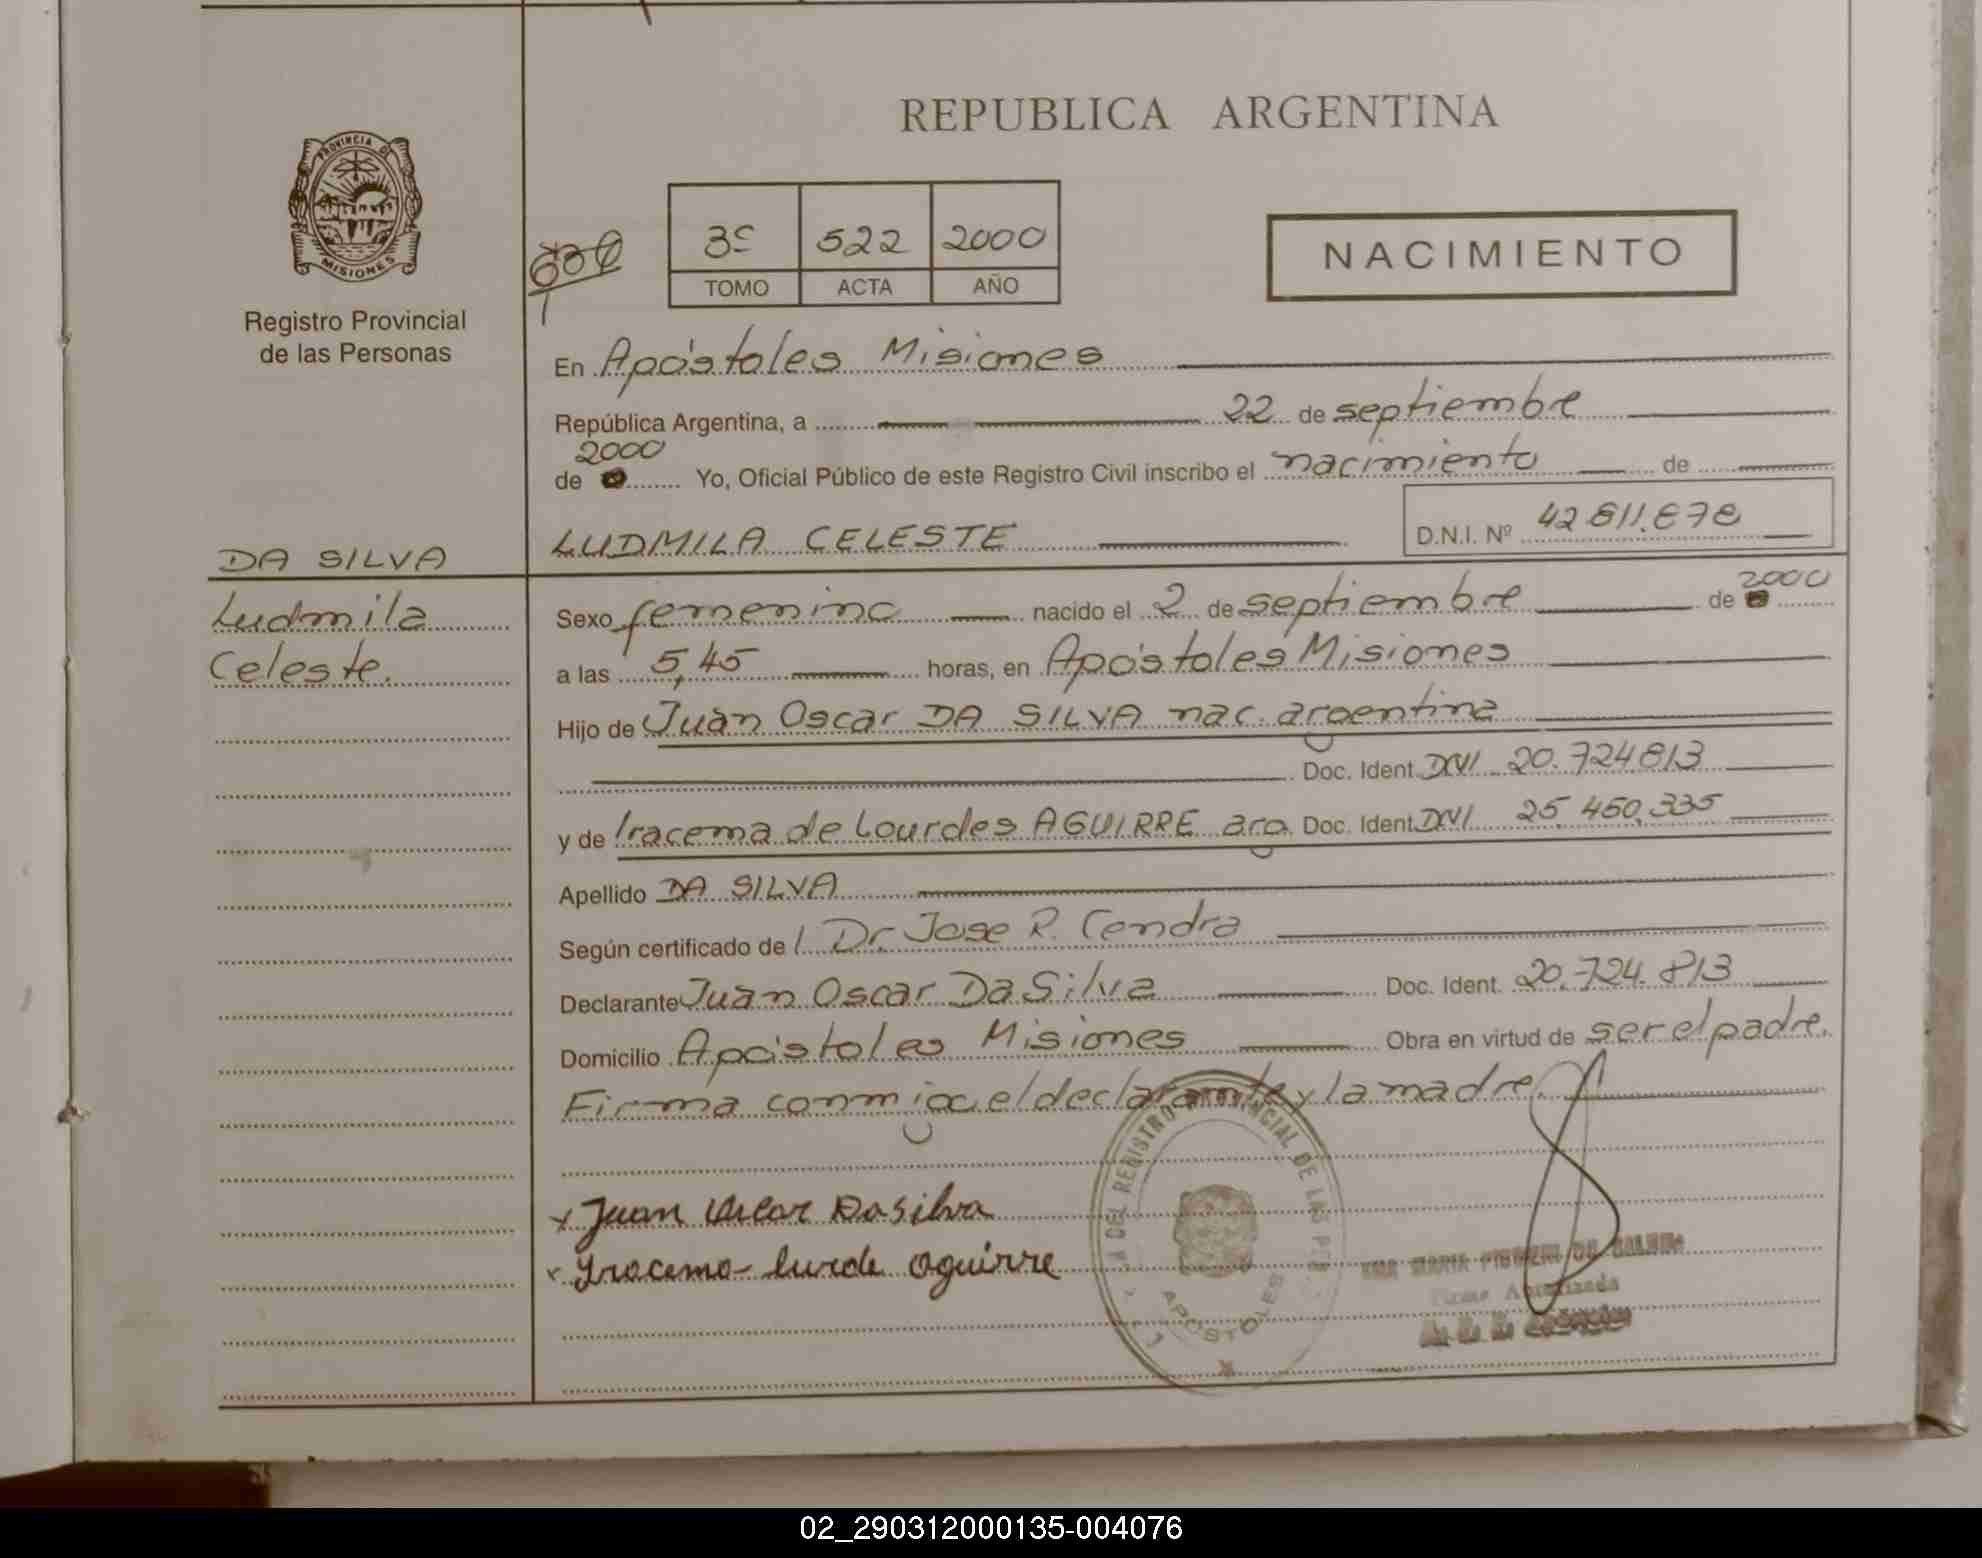 REPUBLICA ARGENTINA
PROVINCIA DE
MISIONES
Registro Provincial
de las Personas
3º 522 2000
TOMO ACTA AÑO
NACIMIENTO
En Apóstoles Misiones
República Argentina, a 22 de septiembre
2000
de Yo, Oficial Público de este Registro Civil inscribo el nacimiento de
DA SILVA
LUDMILA CELESTE D.N.I. Nº 42811.878
Ludmila
Celeste.
Sexo femenino nacido el 2 de septiembre de 2000
a las 5,45 horas, en Apóstoles Misiones
Hijo de Juan Oscar DA SILVA nac. argentina
Doc. Ident. DNI 20.724813
y de Iracema de Lourdes AGUIRRE arg. Doc. Ident. DNI 25.450.335
Apellido DA SILVA
Según certificado de Dr. Jose R. Cendra
Declarante Juan Oscar Da Silva Doc. Ident. 20.724.813
Domicilio Apóstoles Misiones Obra en virtud de ser el padre.
Firma conmigo el declarante y la madre.
x Juan Oscar Da Silva
x Iracema lurde aguirre
DEL REGISTRO PROVINCIAL DE LAS
APOSTOLES
02_290312000135-004076